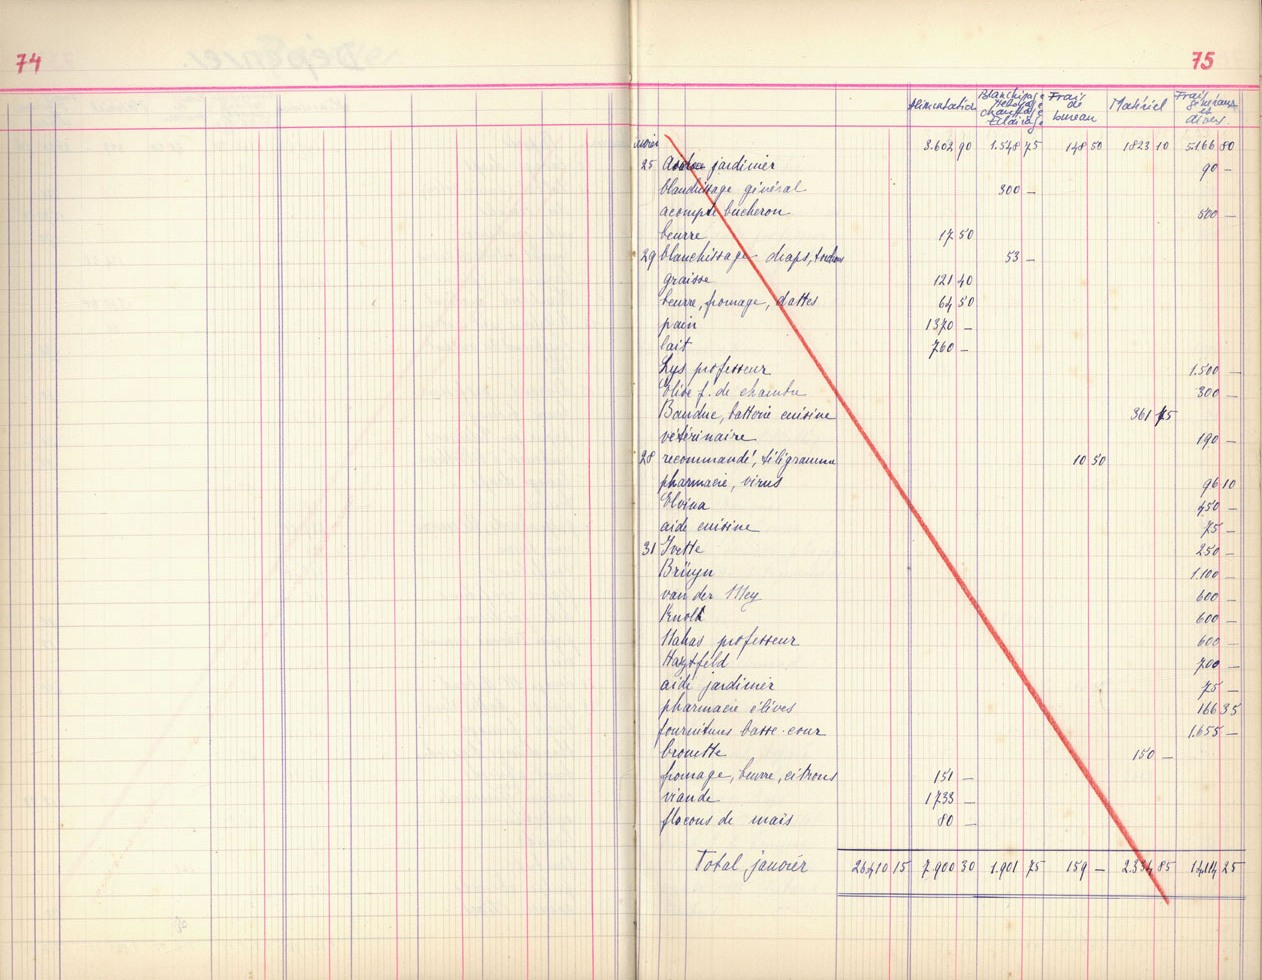 74
75
Alimentation Blanchissage Nettoyage Chauffage Eclairage Frais de bureau Matériel Frais généraux et divers
3.602 90 1.548 75 148 50 1823 10 5166 80
25 jardinier 90 —
blanchissage général 300 —
acompte bucheron 500 —
beurre 17 50
29 blanchissage draps, torchons 53 —
graisse 121 40
beurre, fromage, dattes 64 50
pain 1370 —
lait 760 —
Lys professeur 1.500 —
f. de chambre 300 —
Bauduc, batterie cuisine 361 75
vétérinaire 190 —
28 recommandé, télégramme 10 50
pharmacie, virus 96 10
Elvina 450 —
aide cuisine 75 —
31 Yvette 250 —
Brüyn 1.100 —
van der Mey 600 —
Knoll 600 —
Hahas professeur 600 —
Haztfeld 700 —
aide jardinier 75 —
pharmacie élèves 166 35
fournitures basse-cour 1.655 —
brouette 150 —
fromage, beurre, citrons 151 —
viande 1733 —
flocons de maïs 80 —
Total janvier 26410 15 7.900 30 1.901 75 159 — 2.334 85 14.114 25